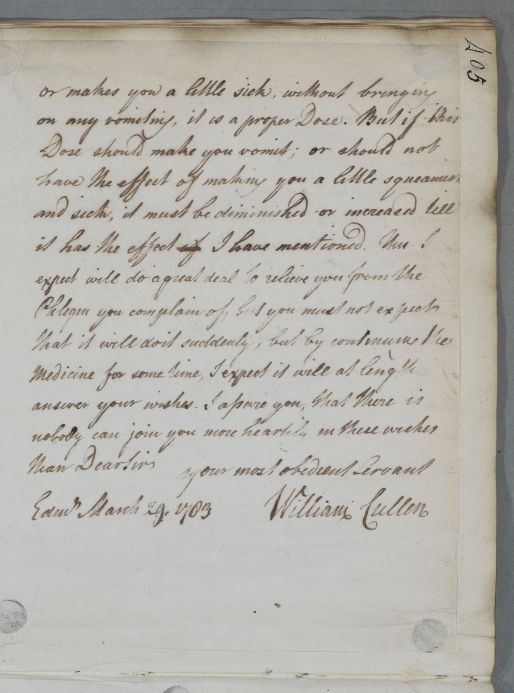 405
or makes you a little sick, without bringing
on any vomiting, it is a proper Dose. But if this
Dose should make you vomit; or should not
have the effect of making you a little squeamish
and sick, it must be diminished or increased till
it has the effect of I have mentioned. This I
expect will do a great deal to relieve you from the
Phlegm you complain of, but you must not expect
that it will do it suddenly, but by continuing the
Medicine for some time, I expect it will at length
answer your wishes. I assure you, that there is
nobody can join you more heartily in these wishes
than Dear Sir
your most obedient Servant
Edinr. March 29. 1783 William Cullen